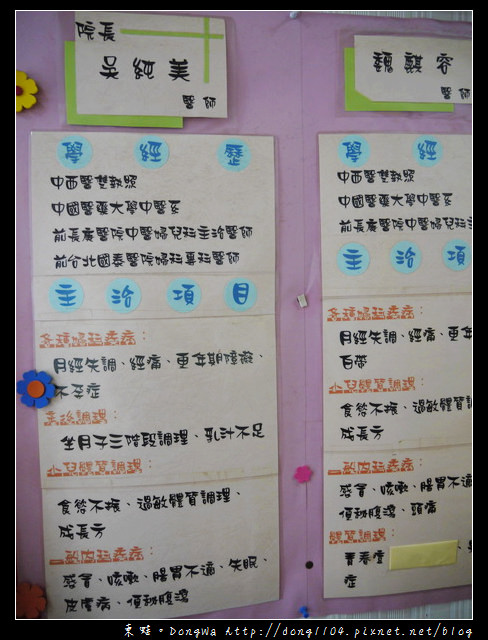 院長
吳純美
醫師
學經歷
中西醫雙執照
中國醫藥大學中醫系
前長庚醫院中醫婦兒科主治醫師
前台北國泰醫院婦科專科醫師
主治項目
各項婦科疾病：
月經失調、經痛、更年期障礙、
不孕症
產後調理：
坐月子三階段調理、乳汁不足
小兒體質調理：
食慾不振、過敏體質調理、
成長方
一般內科疾病：
感冒、咳嗽、腸胃不適、失眠、
皮膚病、便秘腹瀉
魏麒容
醫師
學經
中西醫雙執照
中國醫藥大學中醫系
前長庚醫院中醫婦兒科主
主治項
各項婦科疾病：
月經失調、經痛、更年
白帶
小兒體質調理：
食慾不振、過敏體質調
成長方
一般內科疾病：
感冒、咳嗽、腸胃不適
便秘腹瀉、頭痛
體質調理：
青春痘
症
東蛙。DongWa http://dong1104.pixnet.net/blog